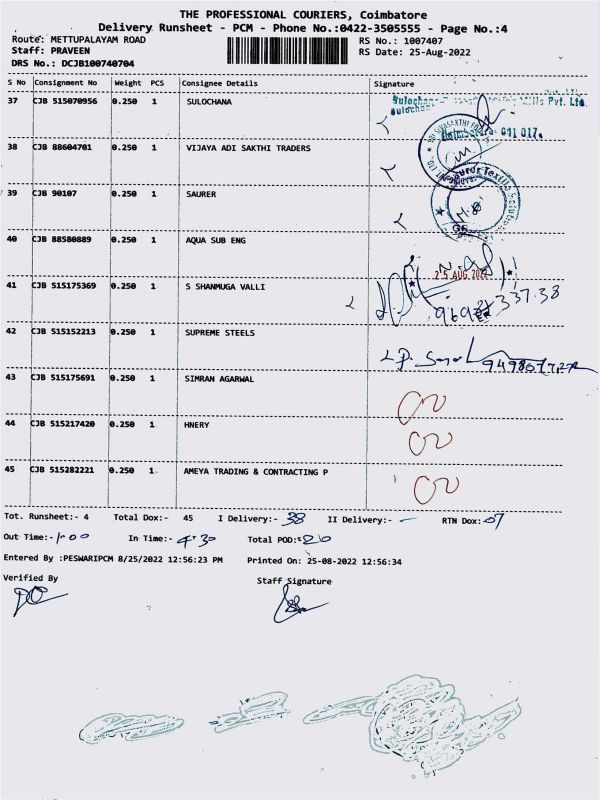 THE PROFESSIONAL COURIERS, Coimbatore
Delivery Runsheet - PCM - Phone No.:0422-3505555 - Page No.:4
Route: METTUPALAYAM ROAD RS No.: 1007407
Staff: PRAVEEN RS Date: 25-Aug-2022
DRS No.: DCJB100740704
S No Consignment No Weight PCS Consignee Details Signature
37 CJB 515070956 0.250 1 SULOCHANA
Mills Pvt. Ltd.
641 017.
38 CJB 88604701 0.250 1 VIJAYA ADI SAKTHI TRADERS
39 CJB 90107 0.250 1 SAURER
40 CJB 88580889 0.250 1 AQUA SUB ENG
25 AUG 2022
41 CJB 515175369 0.250 1 S SHANMUGA VALLI
42 CJB 515152213 0.250 1 SUPREME STEELS
43 CJB 515175691 0.250 1 SIMRAN AGARWAL
44 CJB 515217420 0.250 1 HNERY
45 CJB 515282221 0.250 1 AMEYA TRADING & CONTRACTING P
Tot. Runsheet:- 4 Total Dox:- 45 I Delivery:- 38 II Delivery:- - RTN Dox:- 07
Out Time:- 1.00 In Time:- 4.30 Total POD:- 26
Entered By :PESWARIPCM 8/25/2022 12:56:23 PM Printed On: 25-08-2022 12:56:34
Verified By Staff Signature